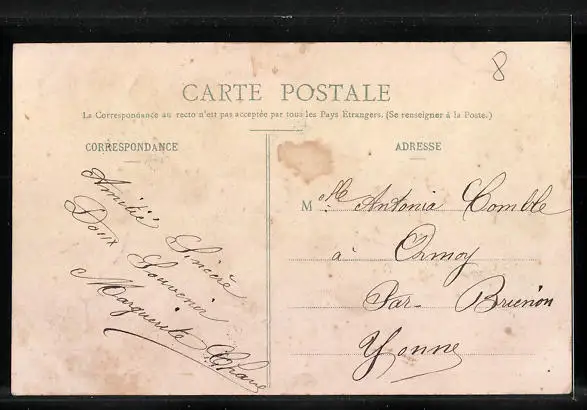 8
CARTE POSTALE
La Correspondance au recto n'est pas acceptée par tous les Pays Étrangers. (Se renseigner à la Poste.)
CORRESPONDANCE
ADRESSE
Amitié Sincère
Doux Souvenir
Marguerite
Melle Antonia Comble
à Ormoy
Par Brienon
Yonne